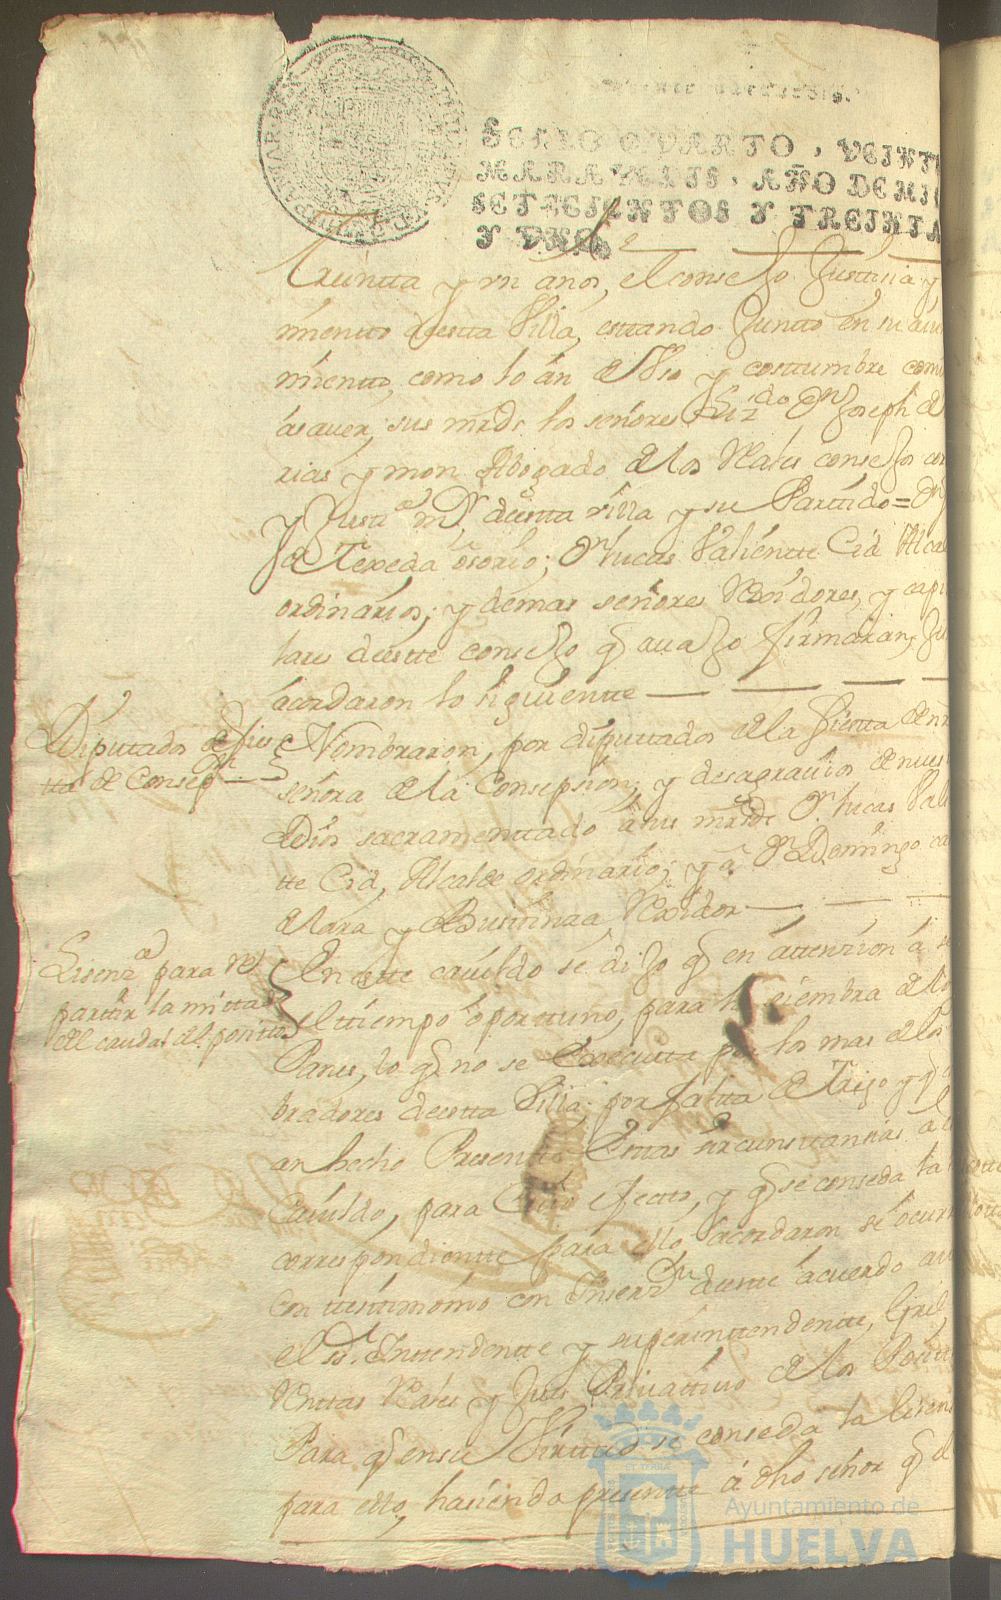 SELLO QVARTO, VEINTE
MARAVEDIS, AÑO DE MIL
SETECIENTOS Y TREINTA
Y VNO.
treintta y un años, el consejo Justisia y
mientto deestta Villa, esttando Juntto en su aiun
mientto, como lo án de Vso y costtumbre com
ásauer, sus mrds los señores Liz.do Dn Joseph de
rias y mon Abogado de los Rales consejos cor
y Justi.a mr deestta villa y su Parttido = Dn
de Texeda osorio; Dn lucas Valientte Cid Alcal
ordinarios; y demas señores Rexidores, y capi
lares deestte consejo q auajo firmaran, Ju
acordaron lo siguientte
Diputtados de fies
tta de Consepn
Nombraron, por diputtados de la fiestta de nr
señora de la Consepsion; y desagrauios de nues
Dios sacramenttado á sus mrds de Dn lucas Vali
tte Cid, Alcalde ordinario; y á Dn Domingo ca
de lara y Busttinza Rexidor
Lisenz.a para re
parttir la mittad
del caudal del positto
En estte cauildo se dijo q en áttension á s
el ttiempo oporttuno, para la siembra de los
Panes, lo q no se executta por los mas de los
bradores deestta Villa; por faltta de Trigo y q
an hecho Presentte Esttas sircunsttansias á es
Cauildo, para dicho efectto, y q se conseda la
correspondientte para ello acordaron se ocurr
con testtimonio con Inserzn destte acuerdo an
el sr. Inttendentte y superinttendentte, Grl,
Renttas Rales y Jues Priuattiuo de los Positt
Para q en su Virttud se conseda la lisens
para ello, hasiendo presentte á dho señor q d
Ayuntamiento de
HUELVA